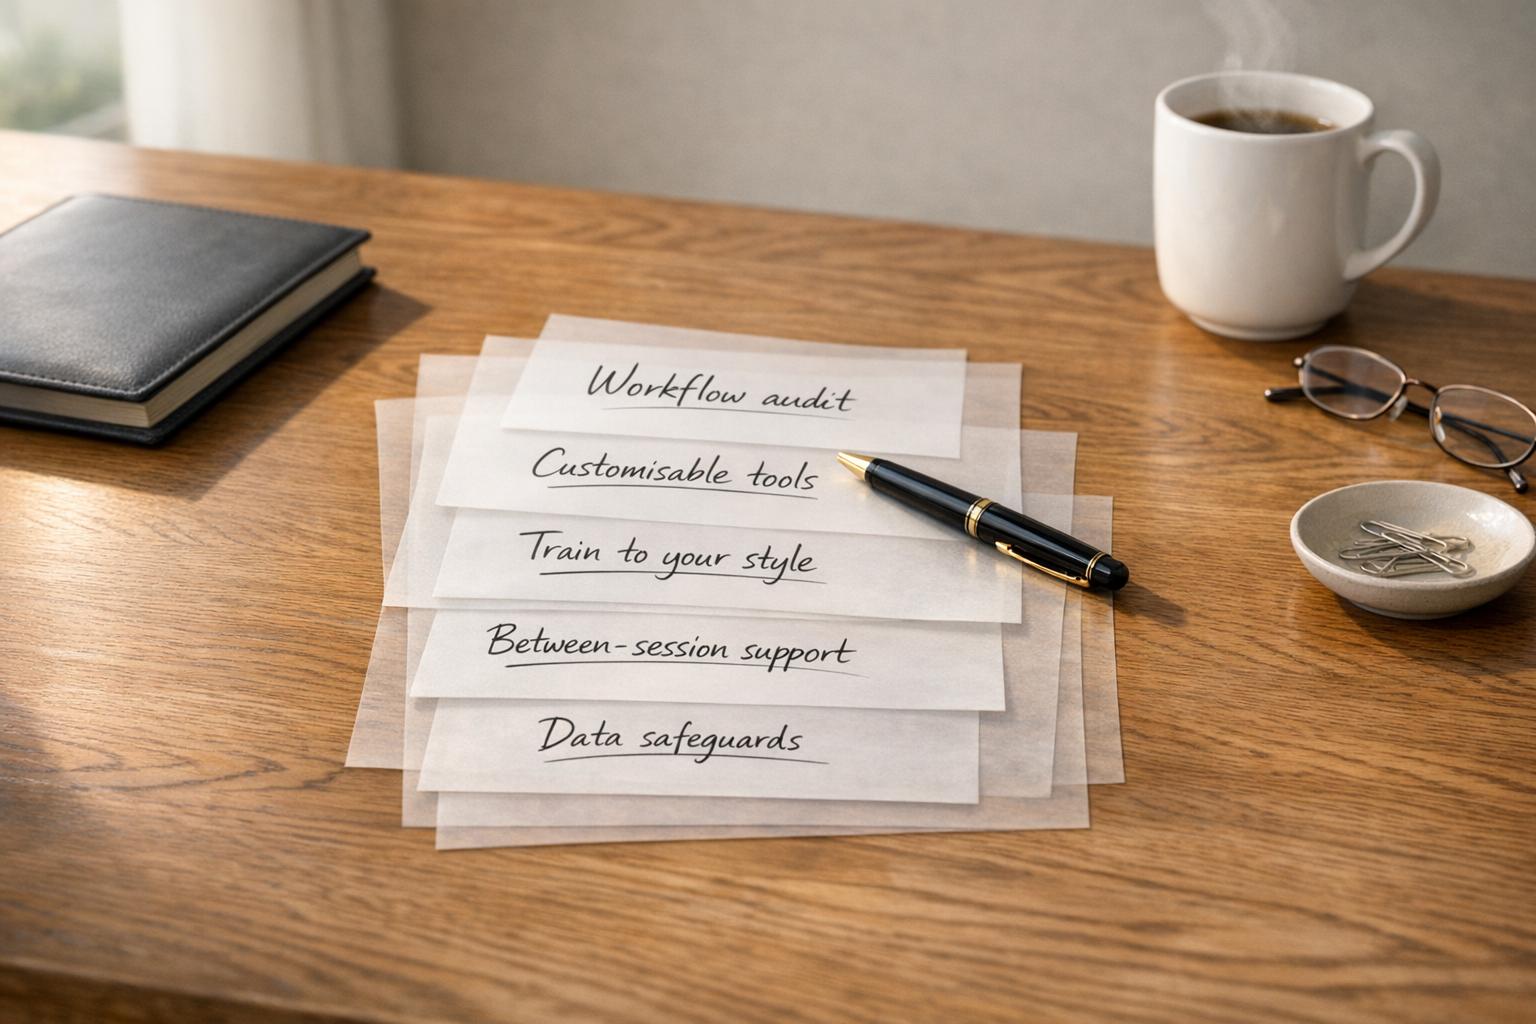 Workflow audit
Customisable tools
Train to your style
Between-session support
Data safeguards